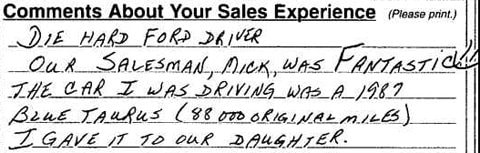 Comments About Your Sales Experience (Please print.)
DIE HARD FORD DRIVER
OUR SALESMAN, MICK, WAS FANTASTIC!!
THE CAR I WAS DRIVING WAS A 1987
BLUE TAURUS (88000 ORIGINAL MILES)
I GAVE IT TO OUR DAUGHTER.